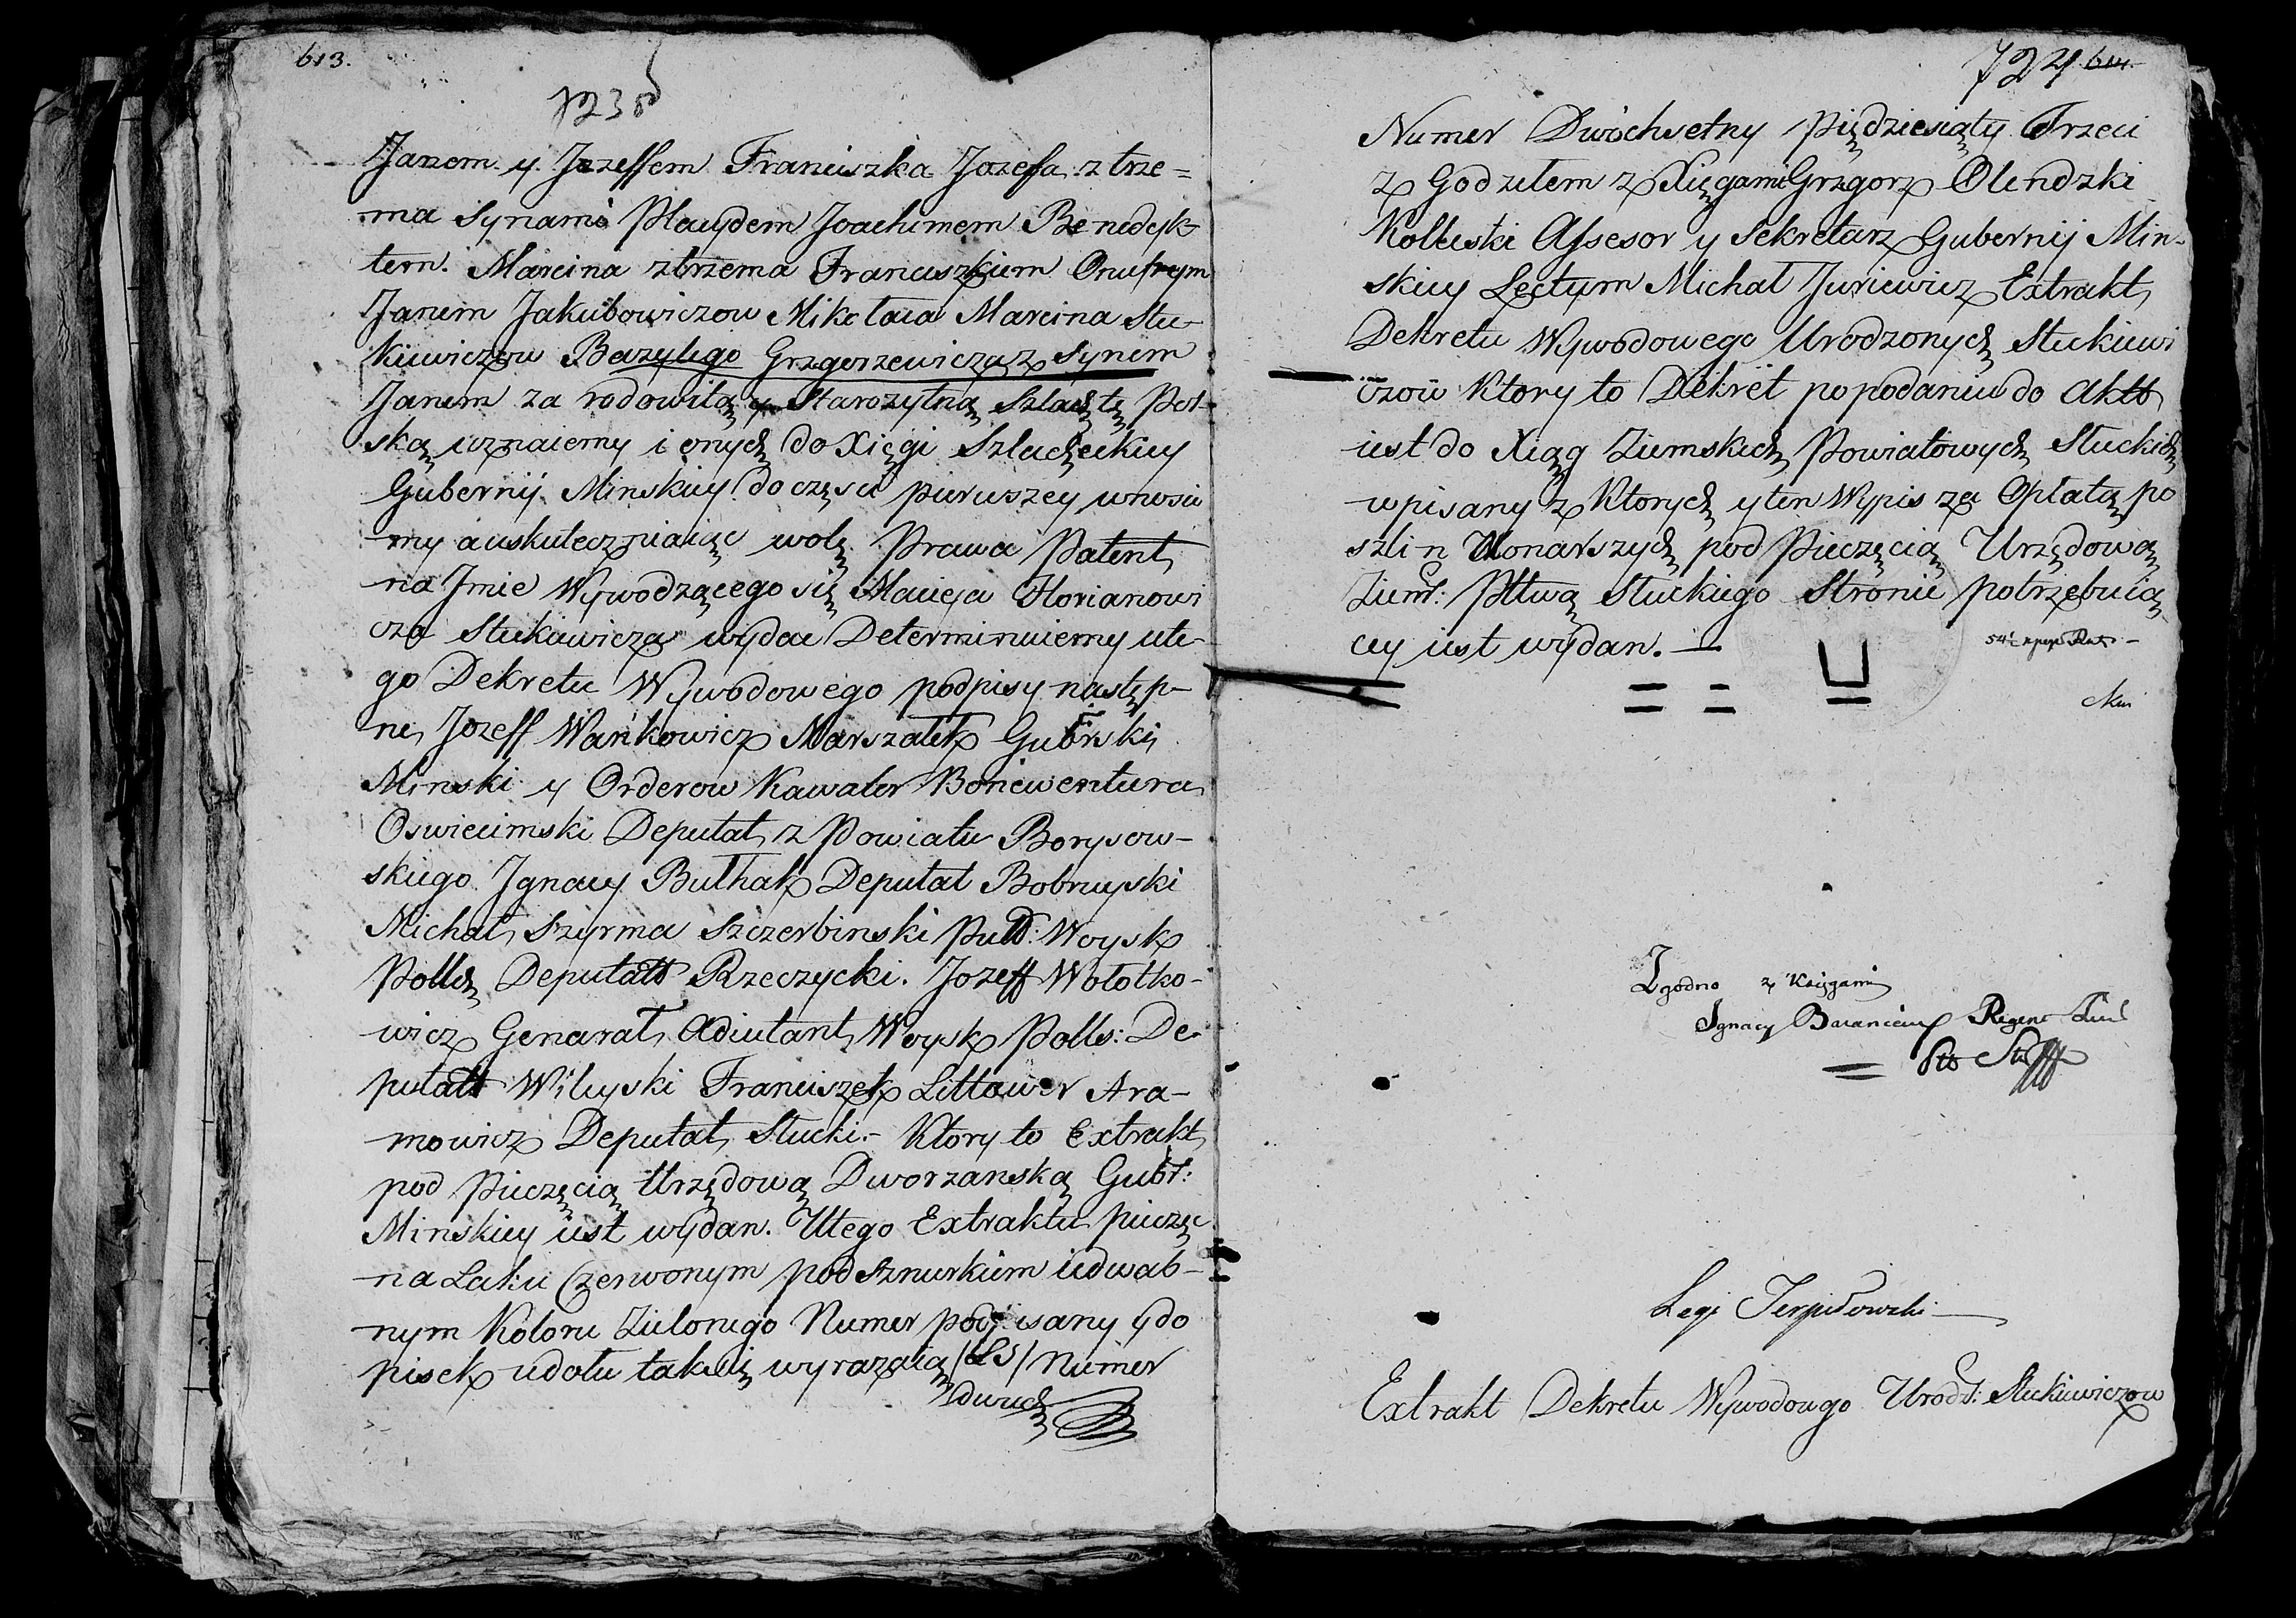 613.
723
Janem y Jozeffem Franciszka Jozefa z trze=
ma Synami Placydem Joachimem Benedyk-
tem. Marcina z trzema Franciszkiem Onufrym
Janem Jakubowiczow Mikołaia Marcina Stu-
kiewiczow Bazylego Grzegorzewicza z Synem
Janem za rodowitą y Starożytną Szlachtę Pol-
ską uznaiemy i onych do Xięgi Szlacheckiey
Gubernij Minskiey do części pierwszey wnosie
my a uskuteczniaiąc wolę Prawa Patent
na Jmie Wywodzącego się Macieja Floryanowi
cza Stukiewicza wydac Determinuiemy u te-
go Dekretu Wywodowego podpisy następ-
ne, Jozeff Wańkowicz Marszałek Gubrski
Minski y Orderow Kawaler Bonawentura
Oswiecimski Deputat z Powiatu Borysow-
skiego Jgnacy Bułhak Deputat Bobruyski
Michał Szyrma Szczerbinski Puł: Woysk
Polls Deputat Rzeczycki. Jozeff Wołotko-
wicz Generał Adiutant Woysk Polls: De-
putat Wileyski Franciszek Littawor Ara-
mowicz Deputat Słucki.- Ktory to Extrakt
pod Pieczęcią Urzędową Dworzanską Gubr:
Minskiey iest wydan. U tego Extraktu pieczęc
na Laku Czerwonym pod sznurkiem iedwab-
nym Koloru Zielonego Numer podpisany y do
pisek u dołu takiey wyrażaią /LS/ Numer
dwuch
724 614.
Numer Dwóchsetny Piędziesiąty Trzeci
z Godziłem z Xięgami Grzegorz Olendzki
Kolleski Assesor y Sekretarz Gubernij Min-
skiey Lectum Michał Juriewicz Extrakt
Dekretu Wywodowego Urodzonych Stukiewi
czow Ktory to Dekret po podaniu do Akt
iest do Xiąg Ziemskich Powiatowych Słuckich
wpisany z Ktorych y ten Wypis za Opłatą po
szlin Monarszych pod Pieczęcią Urzędową
Ziems: Pttwą Słuckiego Stronie potrzebuią
cey iest wydan.
Zgodno z Księgami
Ignacy Regent Ziems
Legi
Extrakt Dekretu Wywodowego Urodz: Stukiewiczow